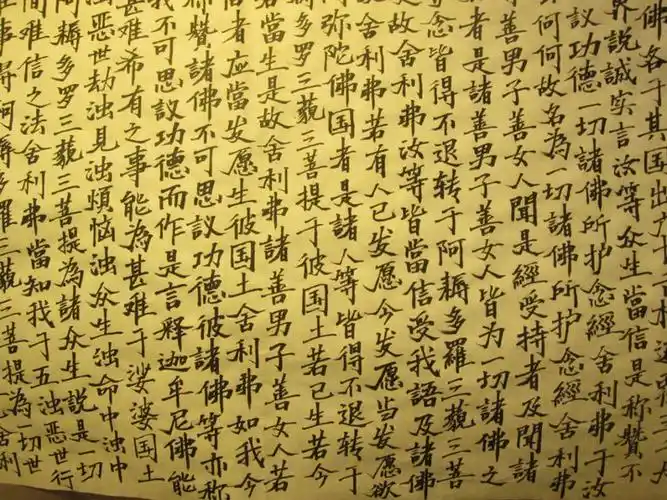 佛各于其国出
界說誠实言汝等众生當信是称赞不
議功德一切諸佛所护念經舍利弗于汝
何何故名為一切諸佛所护念經舍利弗
善男子善女人聞是經受持者及聞諸
者是諸善男子善女人皆为一切諸佛之
念皆得不退转于阿耨多羅三藐三菩
故舍利弗汝等皆當信受我語及諸佛
舍利弗若有人已发愿今发愿当发愿欲
弥陀佛国者是諸人等皆得不退转于
耨多罗三藐三菩提于彼国土若已生若今
若當生是故舍利弗諸善男子善女人若
者应當发愿生彼国土舍利弗如我今
称贊諸佛不可思议功德彼諸佛等亦称
我不可思議功德而作是言釋迦牟尼佛能
甚难希有之事能為甚难于娑婆国土
恶世劫浊見浊煩惱浊众生浊命中浊中
耨多罗三藐三菩提為諸众生說是一切
间难信之法舍利弗當知我于五浊恶世行
事得阿耨多羅三藐三菩提為一切世
舍利